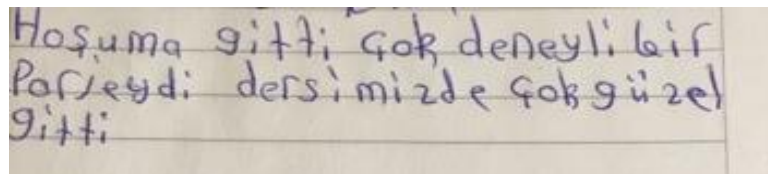 Hoşuma gitti çok deneyli bir
Parleydi dersimizde çok güzel
gitti